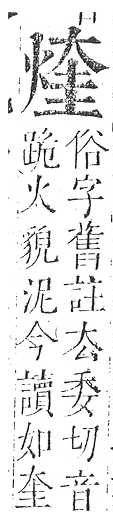 煃
俗字舊註厺委切音
跪火貌泥今讀如奎